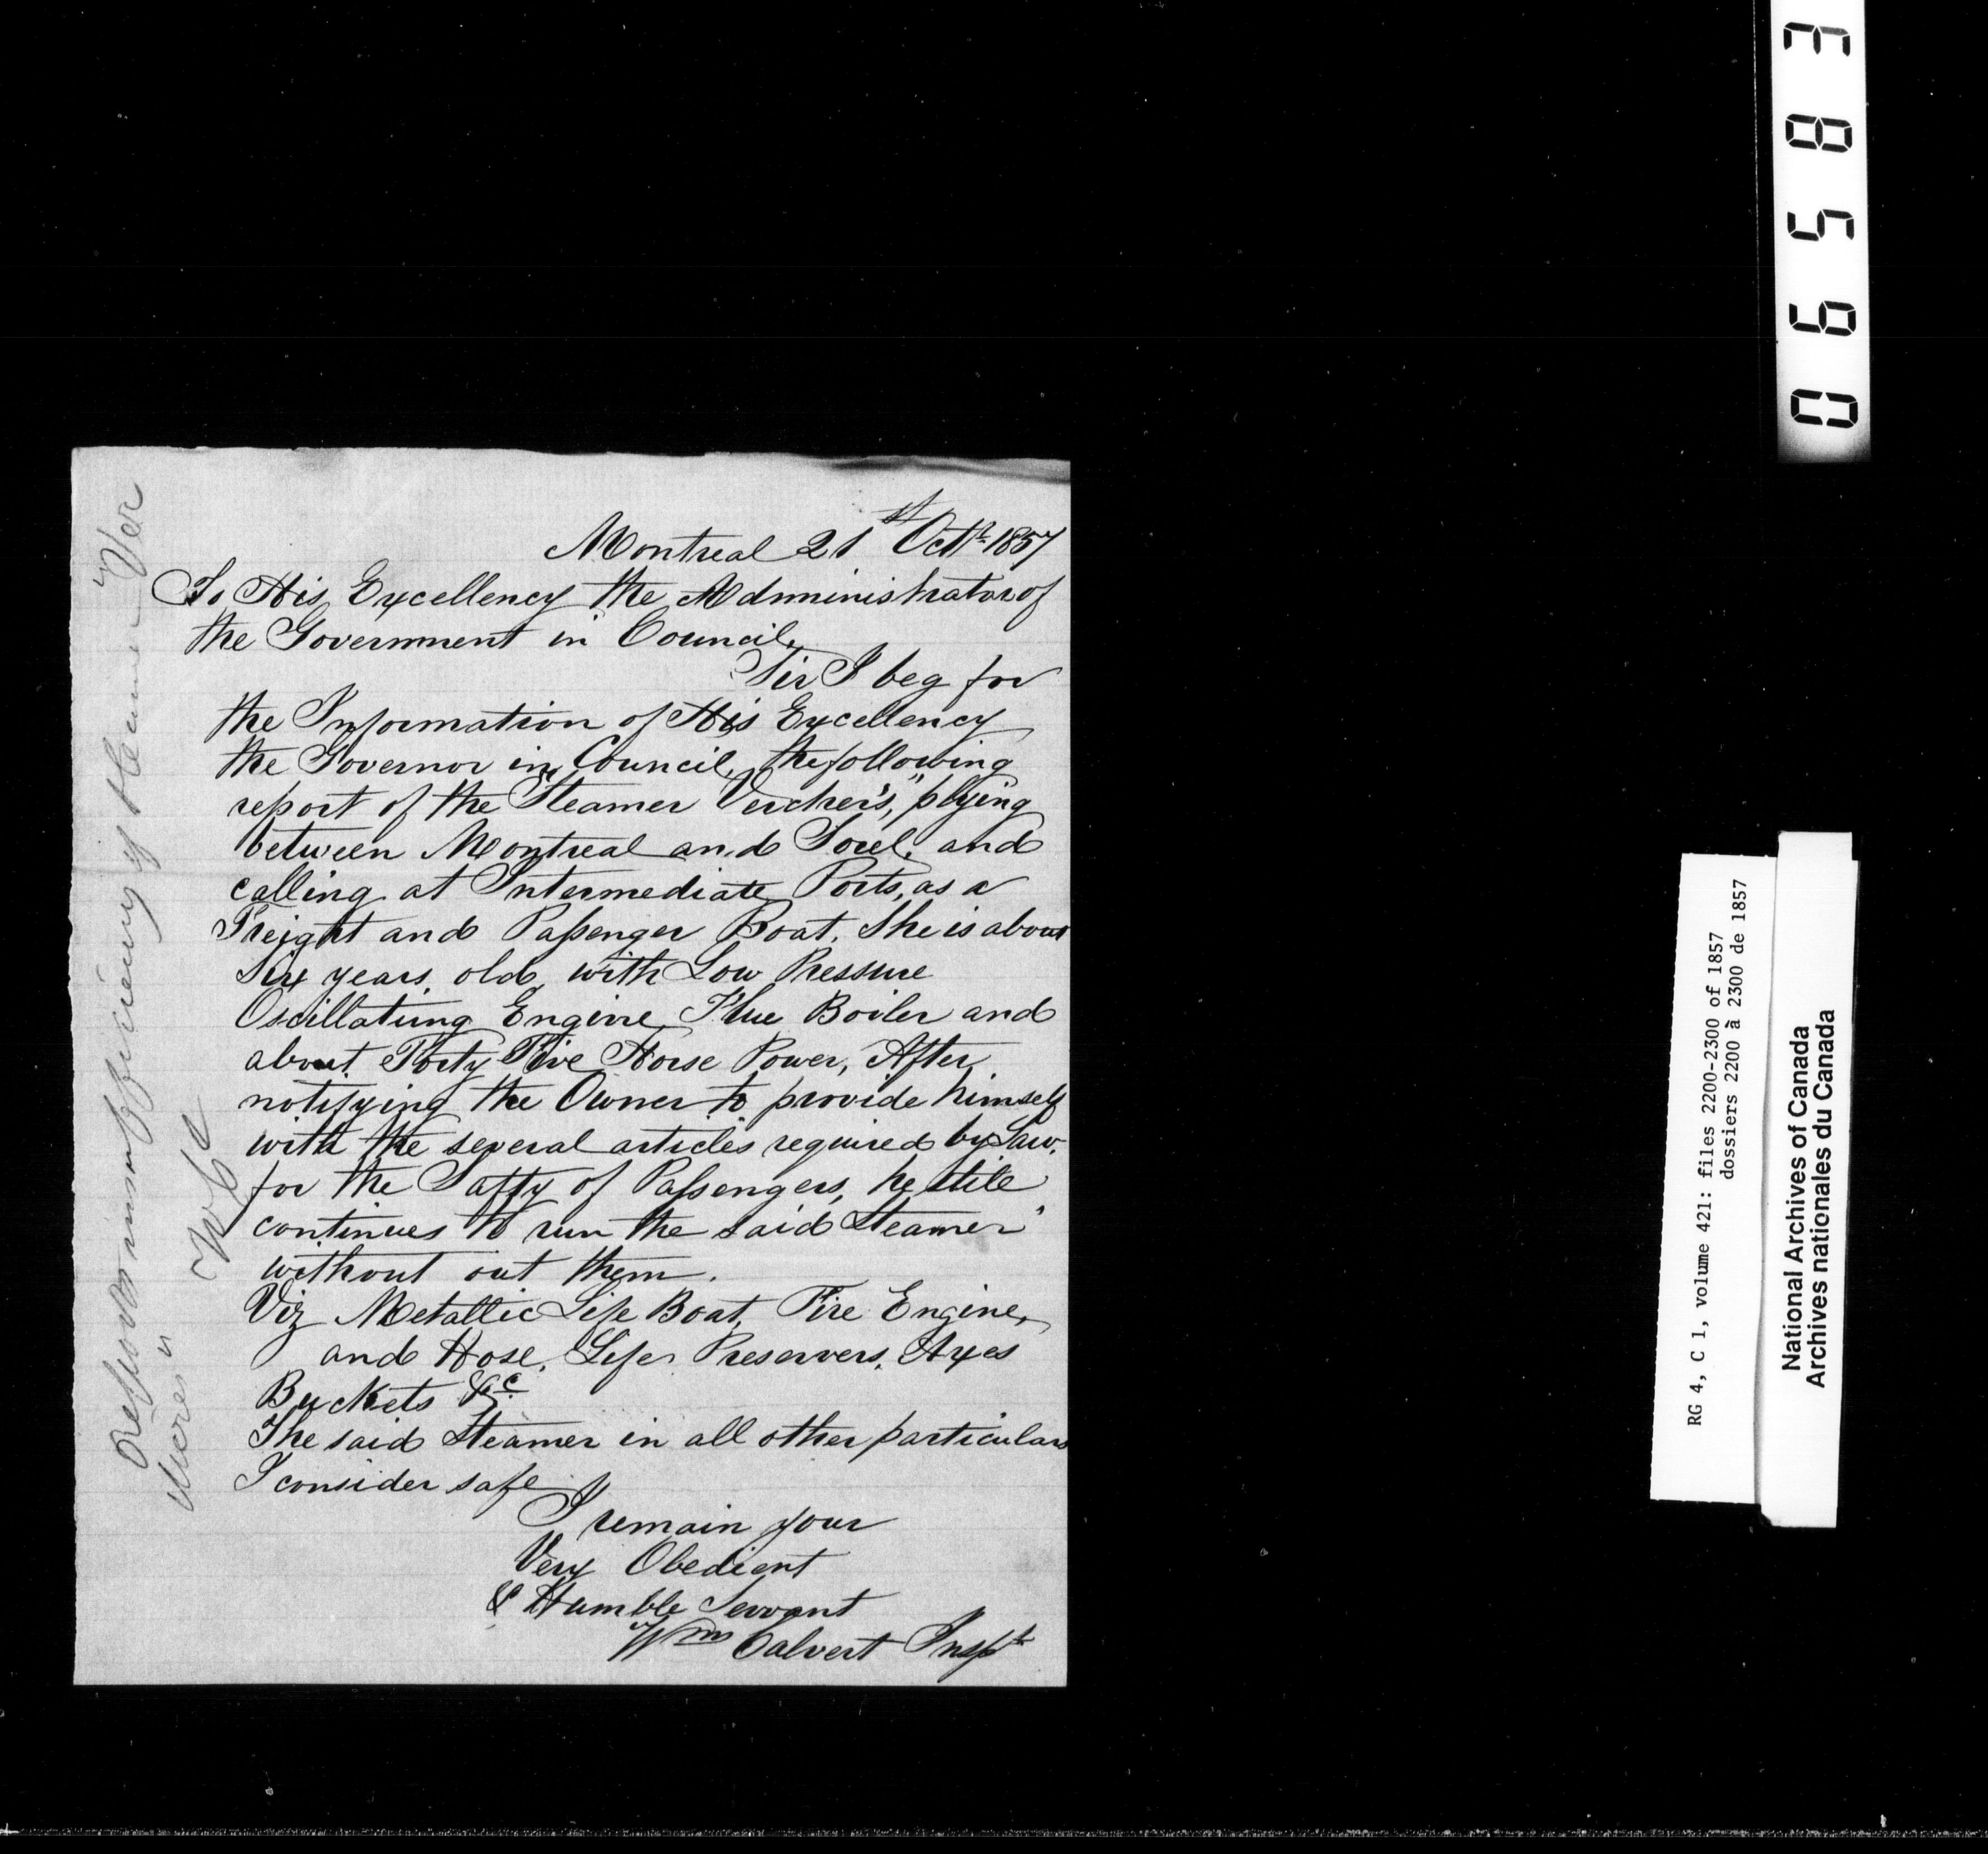 Montreal 21st Octr 1857
To His Excellency the Administrator of
the Government in Council,
Sir I beg for
the Information of His Excellency
the Governor in Council, the following
report of the "Steamer Vercher's," plying
between Montreal and Sorel, and
calling at Intermediate Ports, as a
Freight and Passenger Boat. She is about
Six years old, with Low Pressure
Oscillatiing Engine, Flue Boiler and
about Forty Five Horse Power, After
notifying the Owner to provide himself
with the several articles required by Law,
for the Safty of Passengers, he still
continues to run the said Steamer
without out them.
Viz Metallic Life Boat, Fire Engine,
and Hose, Life Preservers, Axes
Buckets &c
The said Steamer in all other particulars
I consider safe
I remain your
Very Obedient
& Humble Servant
Wm Calvert Inspt
Report on inefficiency of Steamer "Ver
cheres"
06583
RG 4, C 1, volume 421: files 2200-2300 of 1857
dossiers 2200 à 2300 de 1857
National Archives of Canada
Archives nationales du Canada